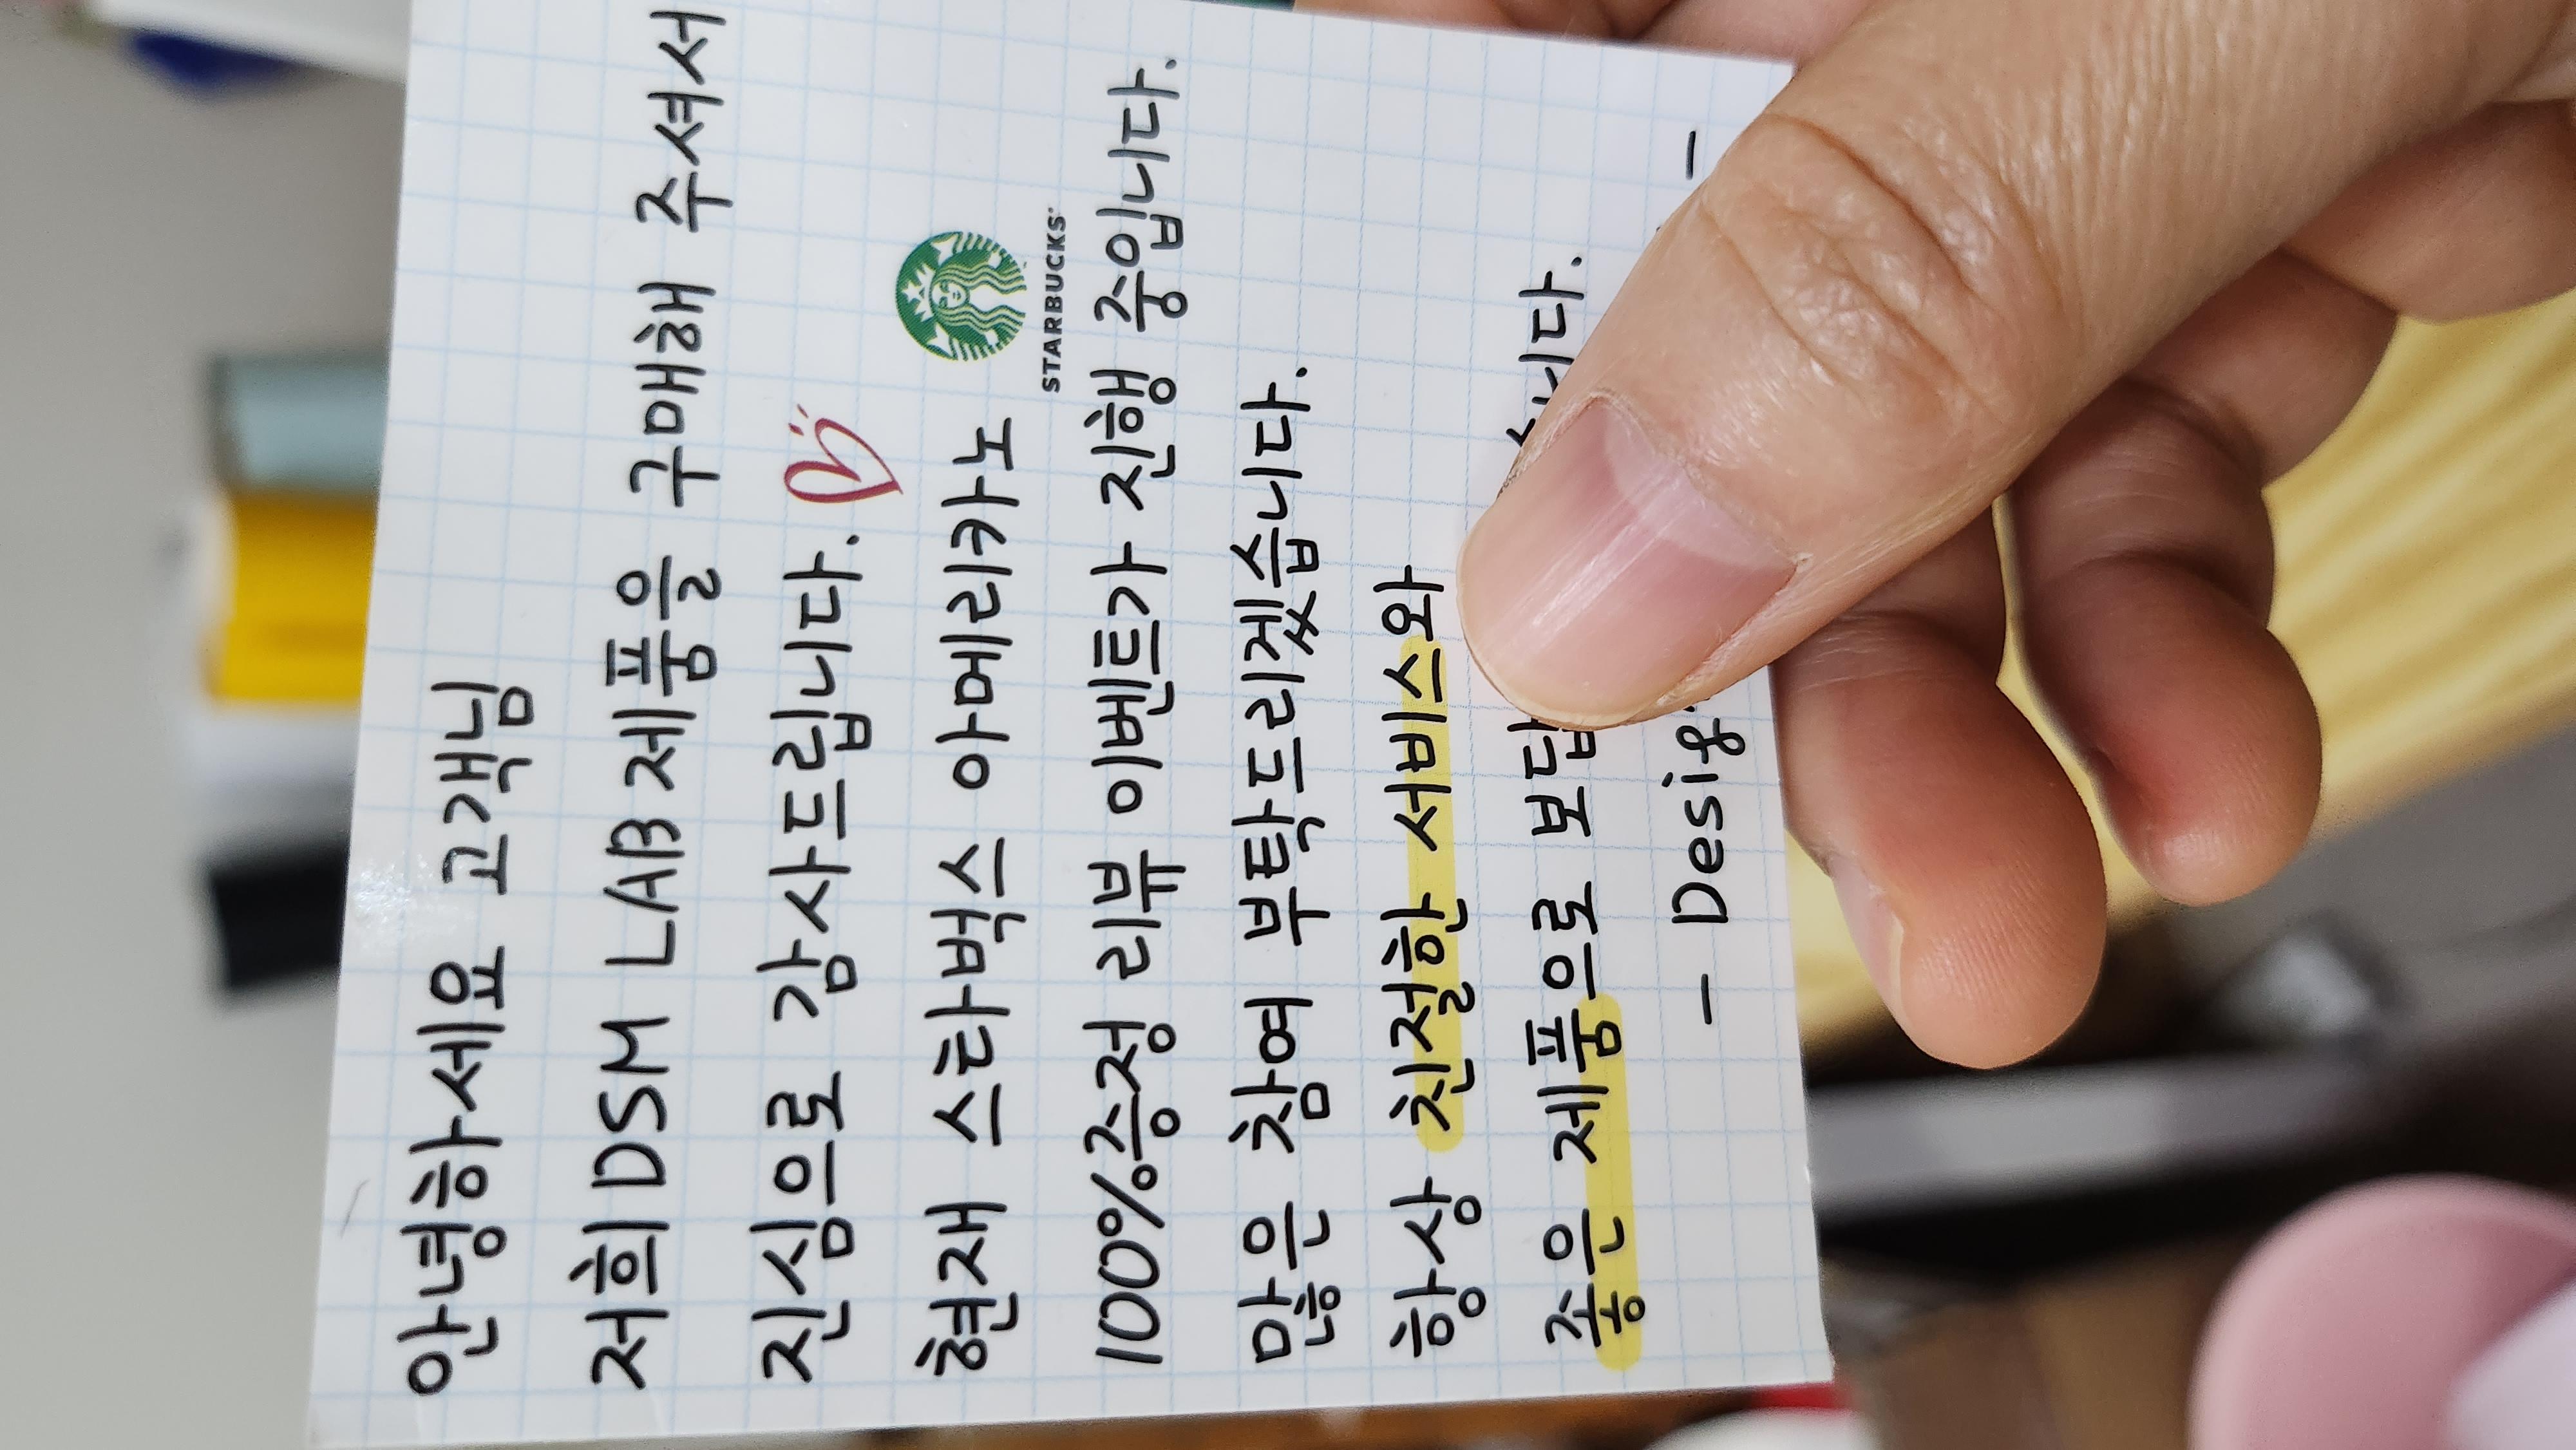 안녕하세요 고객님
저희 DSM LAB 제품을 구매해 주셔서
진심으로 감사드립니다.
현재 스타벅스 아메리카노
STARBUCKS
100%증정 리뷰 이벤트가 진행 중입니다.
많은 참여 부탁드리겠습니다.
항상 친절한 서비스와
좋은 제품으로